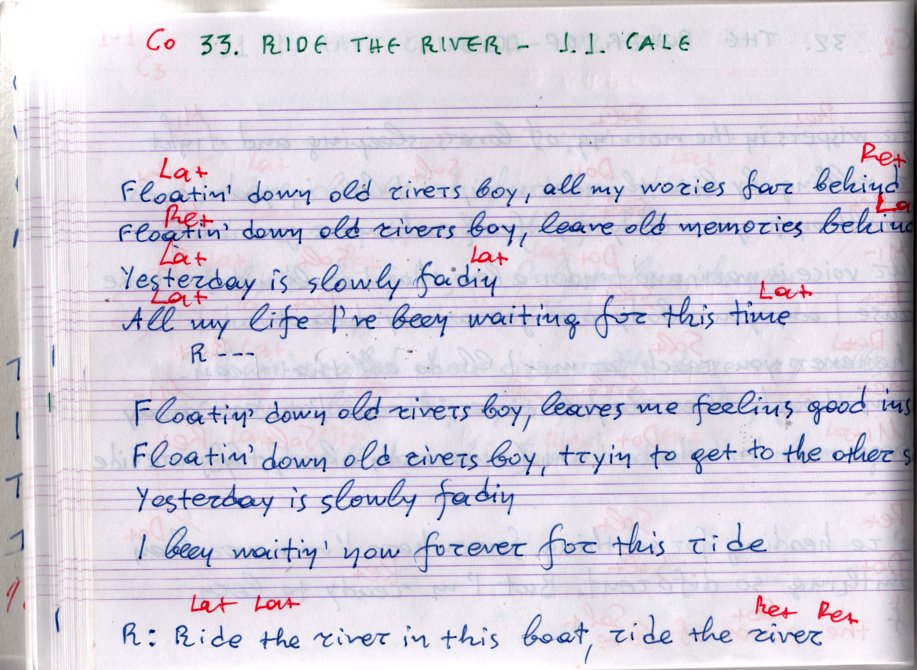 Co 33. RIDE THE RIVER - J.J. CALE
La+ Re+
Floatin' down old rivers boy, all my wories far behind
Re+ La
Floatin' down old rivers boy, leave old memories behind
La+ La+
Yesterday is slowly fadin
La+ La+
All my life I've been waiting for this time
R ---
Floatin' down old rivers boy, leaves me feelins good ins
Floatin' down old rivers boy, tryin to get to the other s
Yesterday is slowly fadin
I been waitin' now forever for this ride
La+ La+ Re+ Re+
R: Ride the river in this boat, ride the river